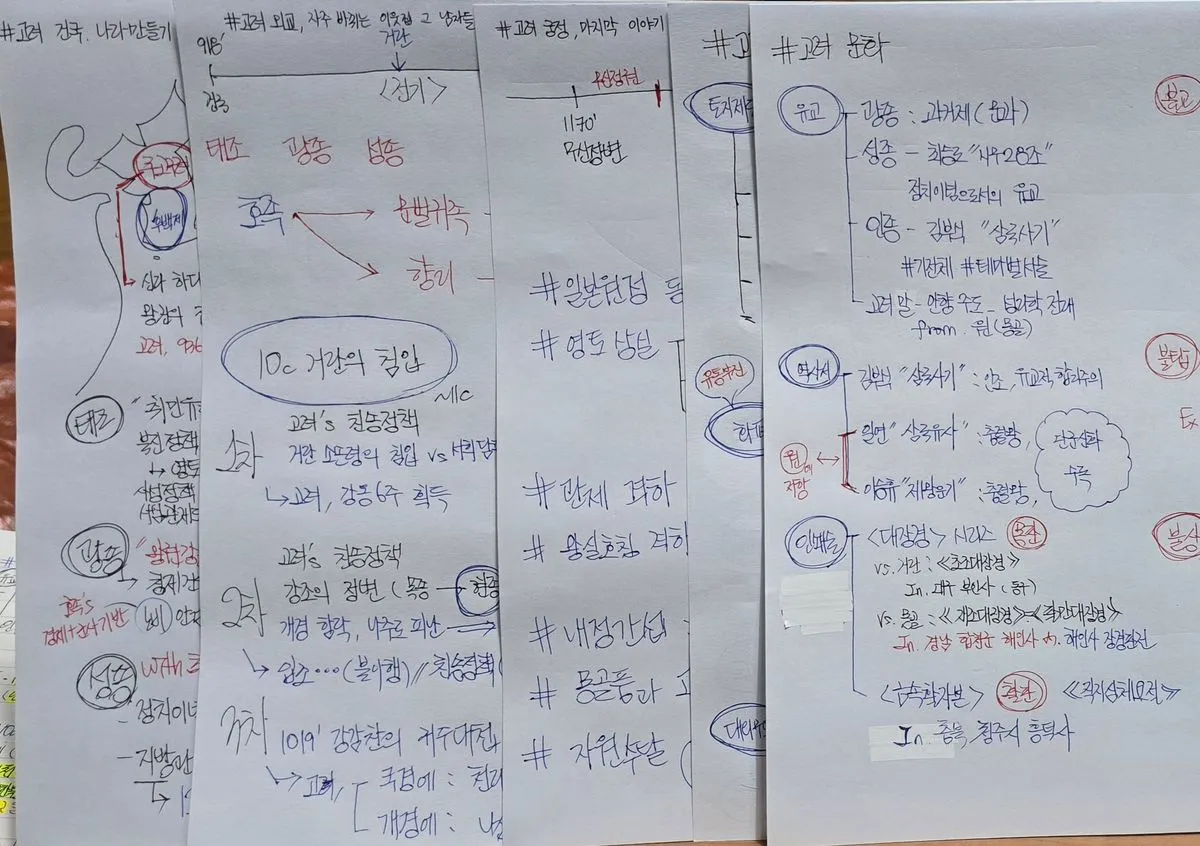 #고려 건국, 나라 만들기
후고구려
후백제
왕건의
고려, 936
태조
북진정책
광종
호족's
경제+군사기반
성종
with
- 정치이념
- 지방관
#고려 외교, 자주 바뀌는 이웃집 그 남자들
918'
건국
거란
<전기>
태조 광종 성종
호족
문벌귀족
향리
10c 거란의 침입
~11c
1차
고려's 친송정책
거란 소손녕의 침입 vs 서희 담판
↳고려, 강동6주 획득
2차
고려's 친송정책
강조의 정변 (목종 — 현종
개경 함락, 나주로 피난
↳ 입조…(불이행) // 친송정책
3차
1019 강감찬의 귀주대첩
↳고려,
국경에 : 천리
개경에 : 나성
#고려 궁정, 마지막 이야기
무신정권
1170'
무신정변
#일본원정
#영토 상실
# 관제 격하
# 왕실호칭 격하
# 내정간섭
# 몽골풍과 고
# 자원수탈
#고
토지제
유통부진
화폐
대외무
#고려 문화
유교
광종 : 과거제 (문과)
성종 - 최승로 "시무28조"
정치이념으로서의 유교
인종 - 김부식 "삼국사기"
#기전체 #테마별서술
고려 말 - 안향 주도 - 성리학 전래
from. 원(몽골)
역사서
김부식 "삼국사기" : 인종, 유교적 합리주의
일연 "삼국유사" : 충렬왕,
이승휴 "제왕운기" : 충렬왕,
단군신화
수록
원에
저항
인쇄술
<대장경> 시리즈 목판
vs. 거란 : ≪초조대장경≫
In. 대구 부인사 (동구)
vs. 몽골 : ≪재조대장경≫=≪팔만대장경≫
In. 경남 합천군 해인사 in. 해인사 장경판전
<금속활자본> 활판 ≪직지심체요절≫
In. 충북, 청주시 흥덕사
불교
불탑
Ex
불상